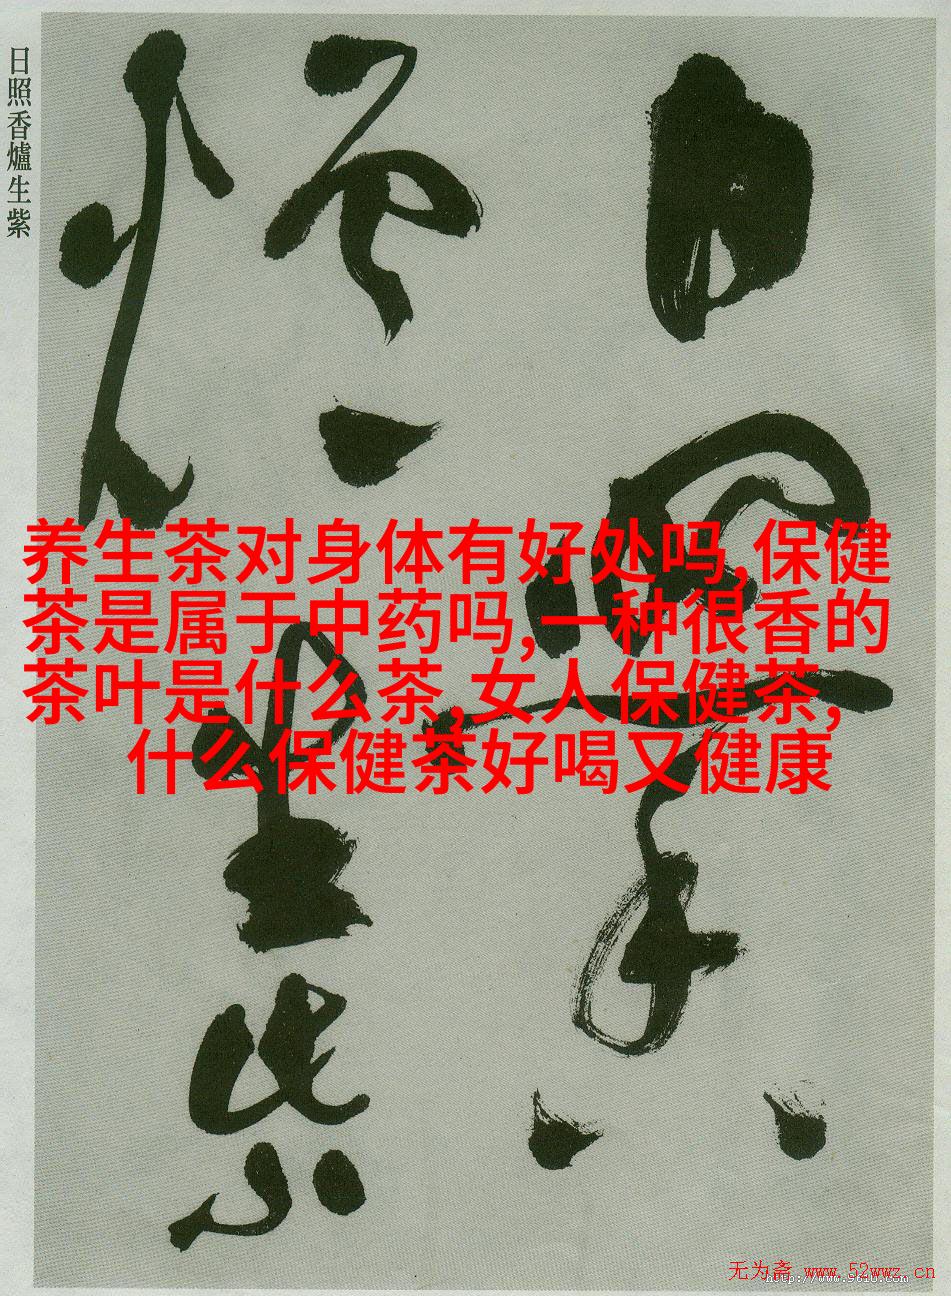 日照香爐生紫
日照香
爐生紫
养生茶对身体有好处吗,保健
茶是属于中药吗,一种很香的
茶叶是什么茶,女人保健茶,
什么保健茶好喝又健康
无为斋 www.52wwz.cn
http://www.9610.com